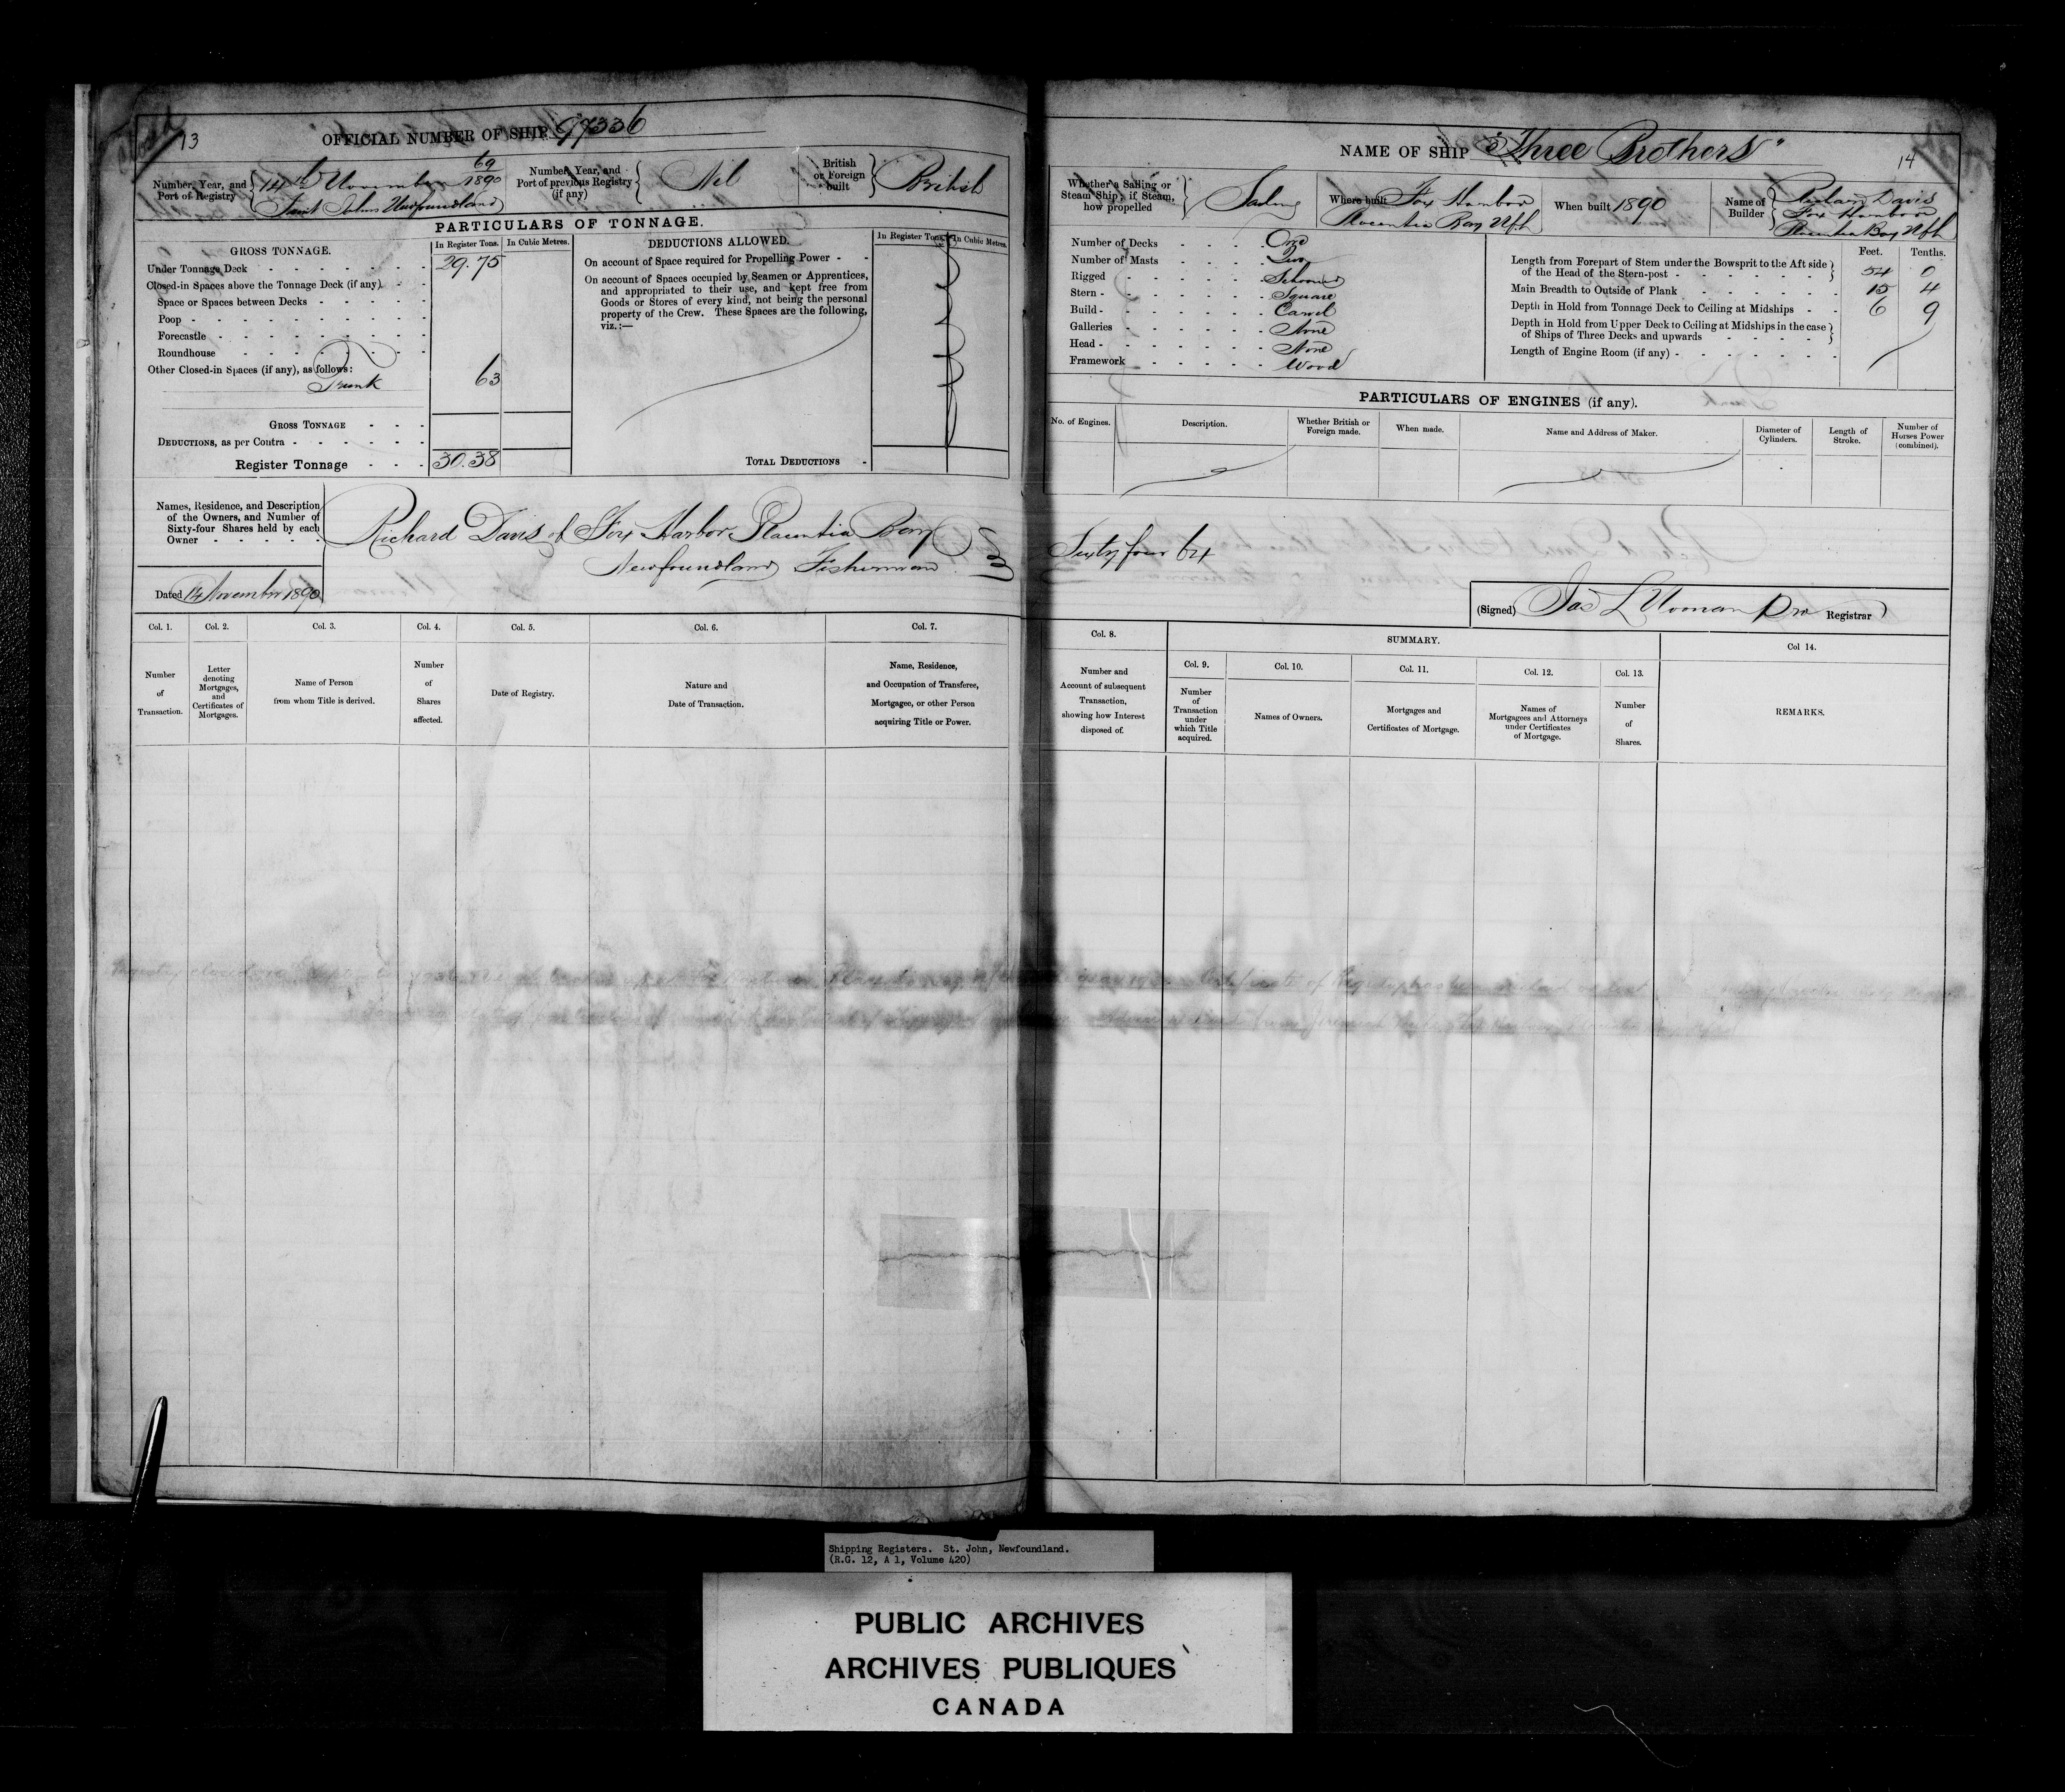 13
OFFICIAL NUMBER OF SHIP 97336
Number, Year, and Port of Registry
69
14th November 1890
Saint Johns Newfoundland
Number, Year, and Port of previous Registry (if any)
Nil
British or Foreign built
British
PARTICULARS OF TONNAGE.
GROSS TONNAGE.
In Register Tons.
In Cubic Metres.
Under Tonnage Deck 29.75
Closed-in Spaces above the Tonnage Deck (if any)
Space or Spaces between Decks
Poop
Forecastle
Roundhouse
Other Closed-in Spaces (if any), as follows:
Trunk 63
GROSS TONNAGE
DEDUCTIONS, as per Contra
Register Tonnage 30.38
DEDUCTIONS ALLOWED.
In Register Tons.
In Cubic Metres.
On account of Space required for Propelling Power
On account of Spaces occupied by Seamen or Apprentices,
and appropriated to their use, and kept free from
Goods or Stores of every kind, not being the personal
property of the Crew. These Spaces are the following,
viz.:—
TOTAL DEDUCTIONS
Names, Residence, and Description
of the Owners, and Number of
Sixty-four Shares held by each
Owner
Richard Davis of Fox Harbor Placentia Bay
Newfoundland Fisherman
Dated 14 November 1890
Col. 1.
Number of Transaction.
Col. 2.
Letter denoting Mortgages, and Certificates of Mortgages.
Col. 3.
Name of Person from whom Title is derived.
Col. 4.
Number of Shares affected.
Col. 5.
Date of Registry.
Col. 6.
Nature and Date of Transaction.
Col. 7.
Name, Residence, and Occupation of Transferee, Mortgagee, or other Person acquiring Title or Power.
NAME OF SHIP "Three Brothers"
14
Whether a Sailing or Steam Ship; if Steam, how propelled
Sailing
Where built Fox Harbor
Placentia Bay Nfld
When built 1890
Name of Builder
Davis
Fox Harbor
Placentia Bay Nfld
Number of Decks One
Number of Masts Two
Rigged Schooner
Stern Square
Build Carvel
Galleries None
Head None
Framework Wood
Feet.
Tenths.
Length from Forepart of Stem under the Bowsprit to the Aft side
of the Head of the Stern-post 54 0
Main Breadth to Outside of Plank 15 4
Depth in Hold from Tonnage Deck to Ceiling at Midships 6 9
Depth in Hold from Upper Deck to Ceiling at Midships in the case
of Ships of Three Decks and upwards
Length of Engine Room (if any)
PARTICULARS OF ENGINES (if any).
No. of Engines.
Description.
Whether British or Foreign made.
When made.
Name and Address of Maker.
Diameter of Cylinders.
Length of Stroke.
Number of Horses Power (combined).
Sixty four 64
(Signed) Jas L Noonan Registrar
Col. 8.
Number and Account of subsequent Transaction, showing how Interest disposed of.
SUMMARY.
Col. 9.
Number of Transaction under which Title acquired.
Col. 10.
Names of Owners.
Col. 11.
Mortgages and Certificates of Mortgage.
Col. 12.
Names of Mortgagees and Attorneys under Certificates of Mortgage.
Col. 13.
Number of Shares.
Col 14.
REMARKS.
Certificate of Registry
Shipping Registers. St. John, Newfoundland.
(R.G. 12, A 1, Volume 420)
PUBLIC ARCHIVES
ARCHIVES PUBLIQUES
CANADA